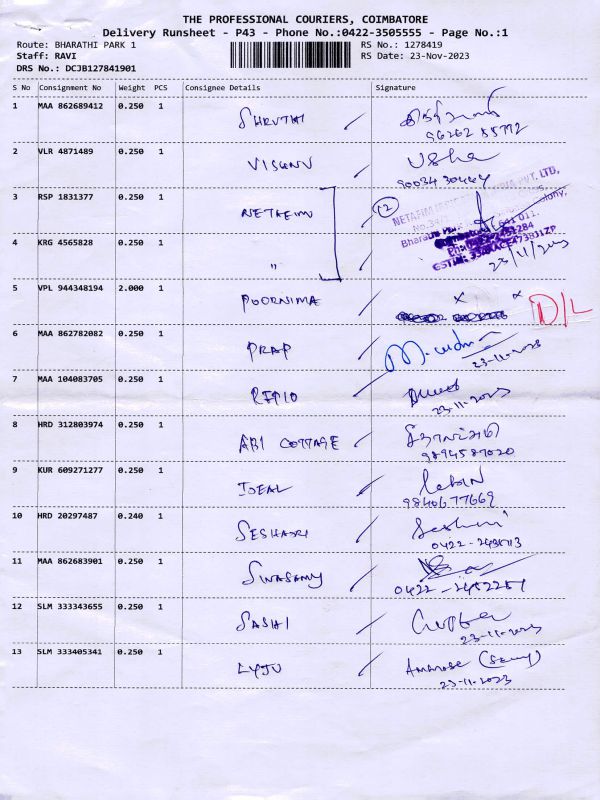 THE PROFESSIONAL COURIERS, COIMBATORE
Delivery Runsheet - P43 - Phone No.:0422-3505555 - Page No.:1
Route: BHARATHI PARK 1 RS No.: 1278419
Staff: RAVI RS Date: 23-Nov-2023
DRS No.: DCJB127841901
S No Consignment No Weight PCS Consignee Details Signature
1 MAA 862689412 0.250 1 SHRUTHI
2 VLR 4871489 0.250 1 VISHNU Usha
3 RSP 1831377 0.250 1 NETAFIM 12
4 KRG 4565828 0.250 1 "
23/11/2023
5 VPL 944348194 2.000 1 POORNIMA x x D/L
6 MAA 862782082 0.250 1 PRAP
23-11-2023
7 MAA 104083705 0.250 1
23-11-2023
8 HRD 312803974 0.250 1 ABI COTTAGE
9894587020
9 KUR 609271277 0.250 1 IDEAL
9840677669
10 HRD 20297487 0.240 1 SESHADRI
11 MAA 862683901 0.250 1 SWASAMY
0422-2452251
12 SLM 333343655 0.250 1 SASHI
23-11-2023
13 SLM 333405341 0.250 1 LYJU
23-11-2023